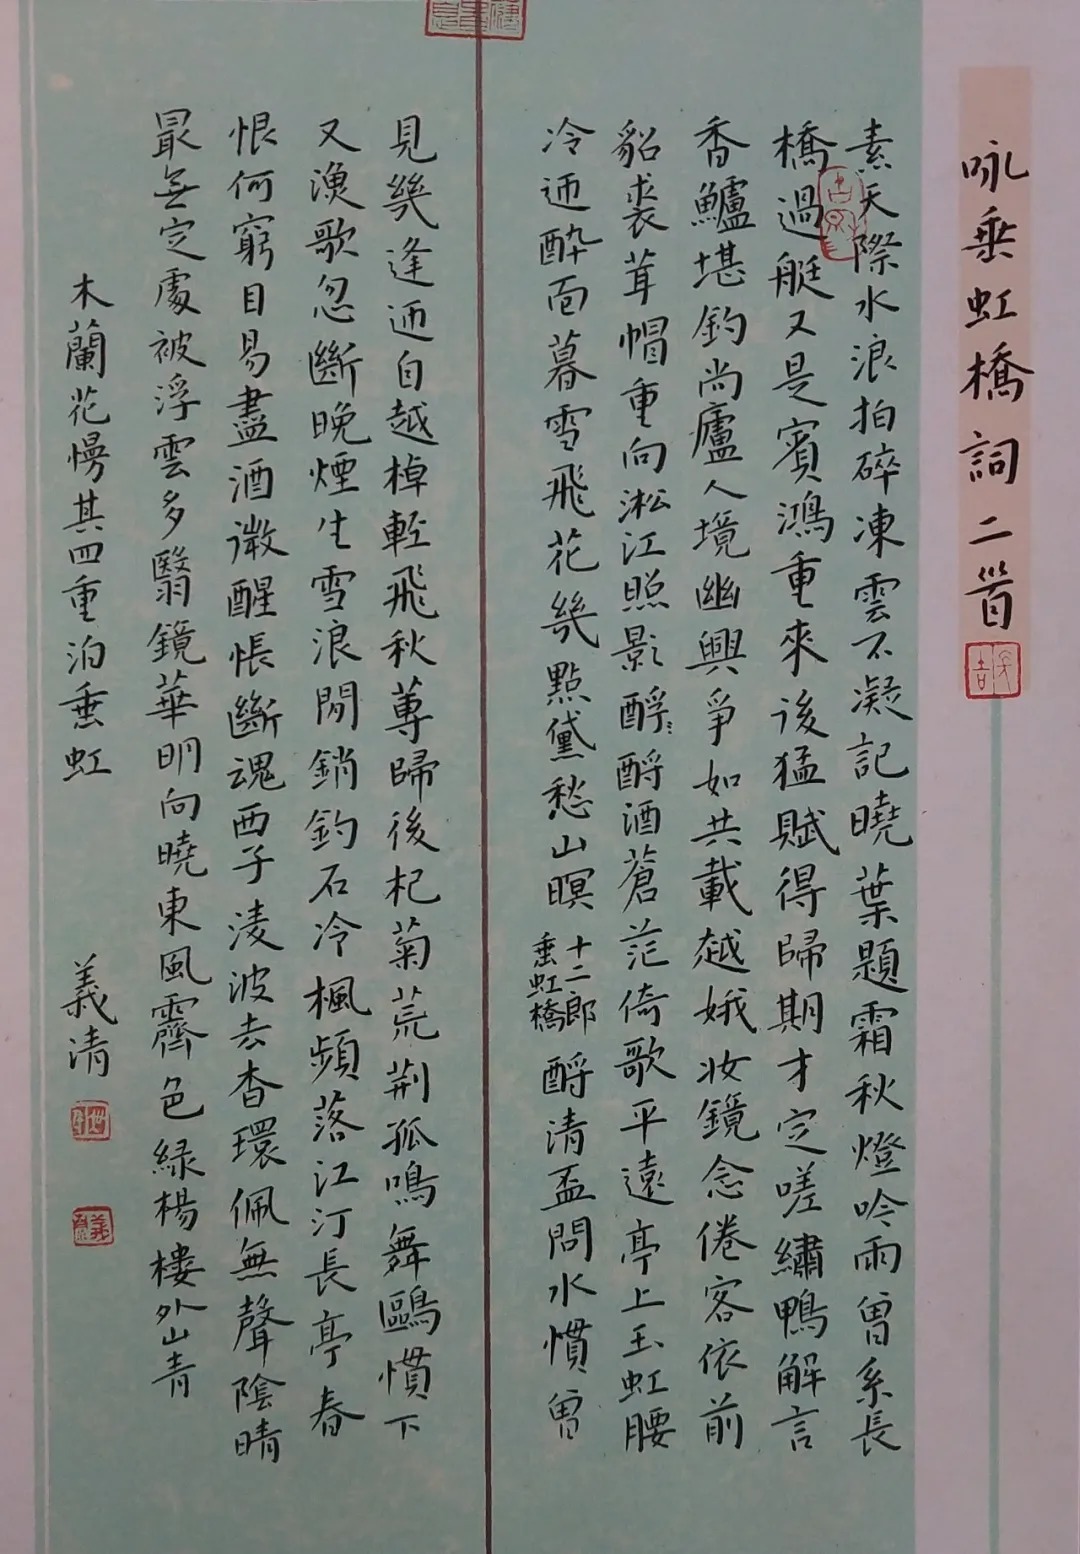 咏垂虹橋詞二首
素天際水浪拍碎凍雲不凝記曉葉題霜秋燈吟雨曾系長
橋過艇又是賓鴻重來後猛賦得歸期才定嗟繡鴨解言
香鱸堪釣尚廬人境幽興爭如共載越娥妝鏡念倦客依前
貂裘茸帽重向淞江照影酹酹酒蒼茫倚歌平遠亭上玉虹腰
冷迊醉面暮雪飛花幾點黛愁山暝 十二郎 垂虹橋 酹清盃問水慣曾
見幾逢迊自越棹輕飛秋蓴歸後杞菊荒荆孤鳴舞鷗慣下
又漁歌忽斷晚煙生雪浪閒銷釣石冷楓頻落江汀長亭春
恨何窮目易盡酒微醒悵斷魂西子淩波去杳環佩無聲陰晴
最無定處被浮雲多翳鏡華明向曉東風霽色綠楊樓外山青
木蘭花慢其四重泊垂虹
義清